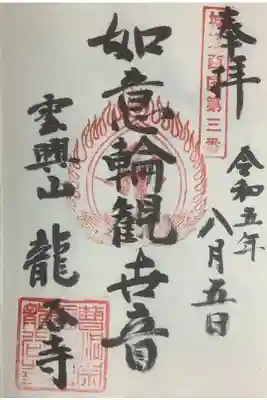 奉拝
西国第三番
令和五年
八月五日
如意輪観世音
雲興山
龍 寺